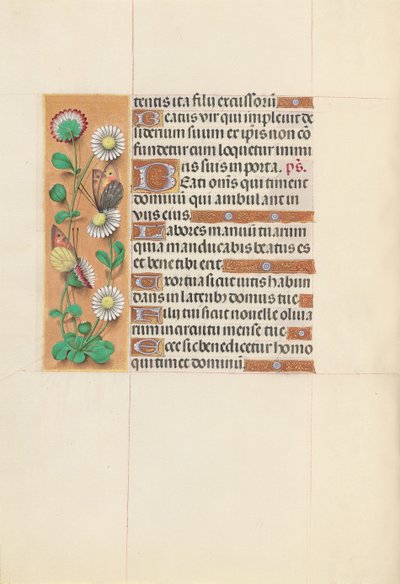 tentis ita filij excussorū
Beatus vir qui implevit de
siderium suum ex ip̄is non cō
fundetur cum loquetur inimi
cis suis in porta. ps̄.
Beati om̄s qui timent
dominū qui ambulant in
vijs eius.
Labores manuū tuarum
quia manducabis beatus es
et bene tibi erit
Uxor tua sicut vitis habun
dans in laterib᷒ domus tue
Filij tui sicut nouelle oliua
rum in circuitu mense tue
Ecce sic benedicetur homo
qui timet dominū.